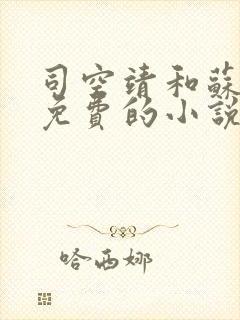 司空靖和蘇
免費的小說
哈西娜